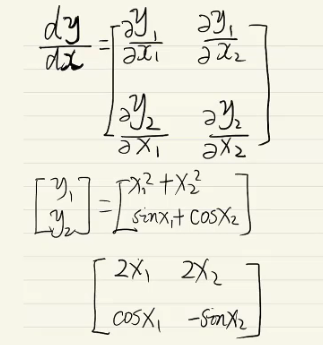 dy/dx = [∂y₁/∂x₁ ∂y₁/∂x₂
∂y₂/∂x₁ ∂y₂/∂x₂]
[y₁ = [x₁² + x₂²
y₂] sinx₁ + cosx₂]
[2x₁ 2x₂
cosx₁ -sinx₂]